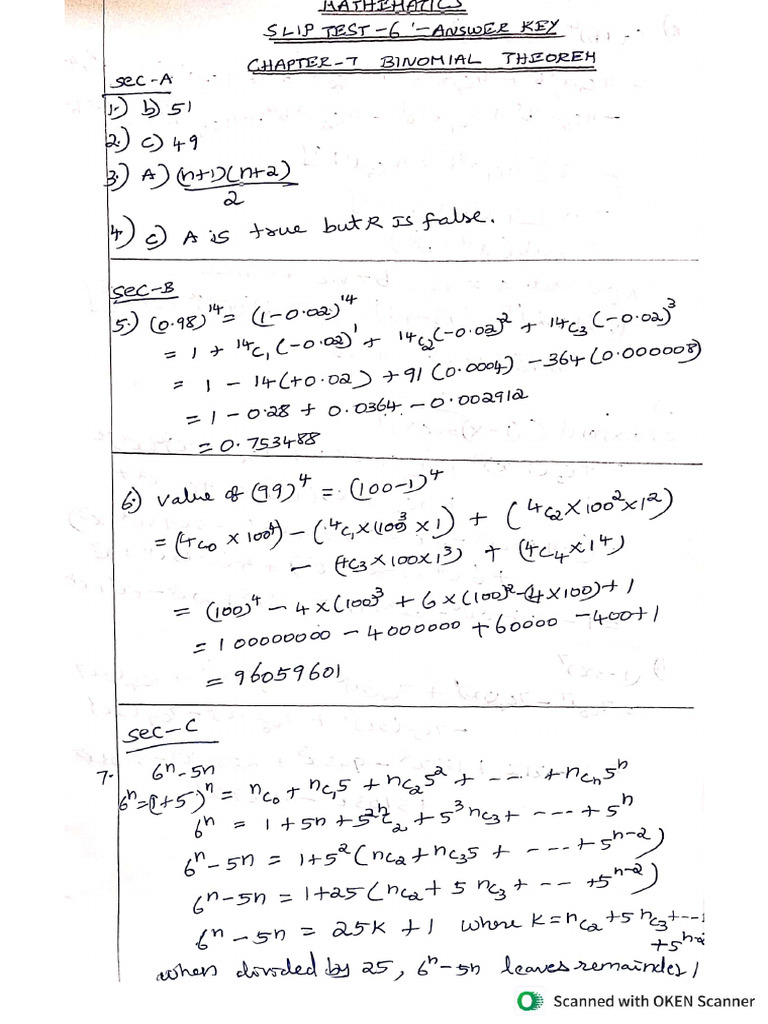 MATHEMATICS
SLIP TEST-6 - ANSWER KEY
CHAPTER-7 BINOMIAL THEOREM
SEC-A
1.) b) 51
2.) c) 49
3.) A) (n+1)(n+2)
2
4.) c) A is true but R is false.
SEC-B
5.) (0.98)¹⁴ = (1-0.02)¹⁴
= 1 + ¹⁴C₁(-0.02)¹ + ¹⁴C₂(-0.02)² + ¹⁴C₃(-0.02)³
= 1 - 14(+0.02) + 91(0.0004) - 364(0.000008)
= 1 - 0.28 + 0.0364 - 0.002912
= 0.753488
6.) Value of (99)⁴ = (100-1)⁴
= (4C₀ × 100⁴) - (4C₁ × 100³ × 1) + (4C₂ × 100² × 1²)
- (4C₃ × 100 × 1³) + (4C₄ × 1⁴)
= (100)⁴ - 4×(100)³ + 6×(100)² - (4×100) + 1
= 100000000 - 4000000 + 60000 - 400 + 1
= 96059601
SEC-C
7. 6ⁿ-5n
6ⁿ = (1+5)ⁿ = nC₀ + nC₁5 + nC₂5² + --- + nCₙ5ⁿ
6ⁿ = 1 + 5n + 5²ⁿC₂ + 5³ nC₃ + --- + 5ⁿ
6ⁿ-5n = 1+5² (nC₂ + nC₃5 + --- + 5ⁿ⁻²)
6ⁿ-5n = 1+25 (nC₂ + 5 nC₃ + -- +5ⁿ⁻²)
6ⁿ-5n = 25K + 1 where K = nC₂ + 5 nC₃ + --
+5ⁿ⁻²
when divided by 25, 6ⁿ-5n leaves remainder 1
Scanned with OKEN Scanner